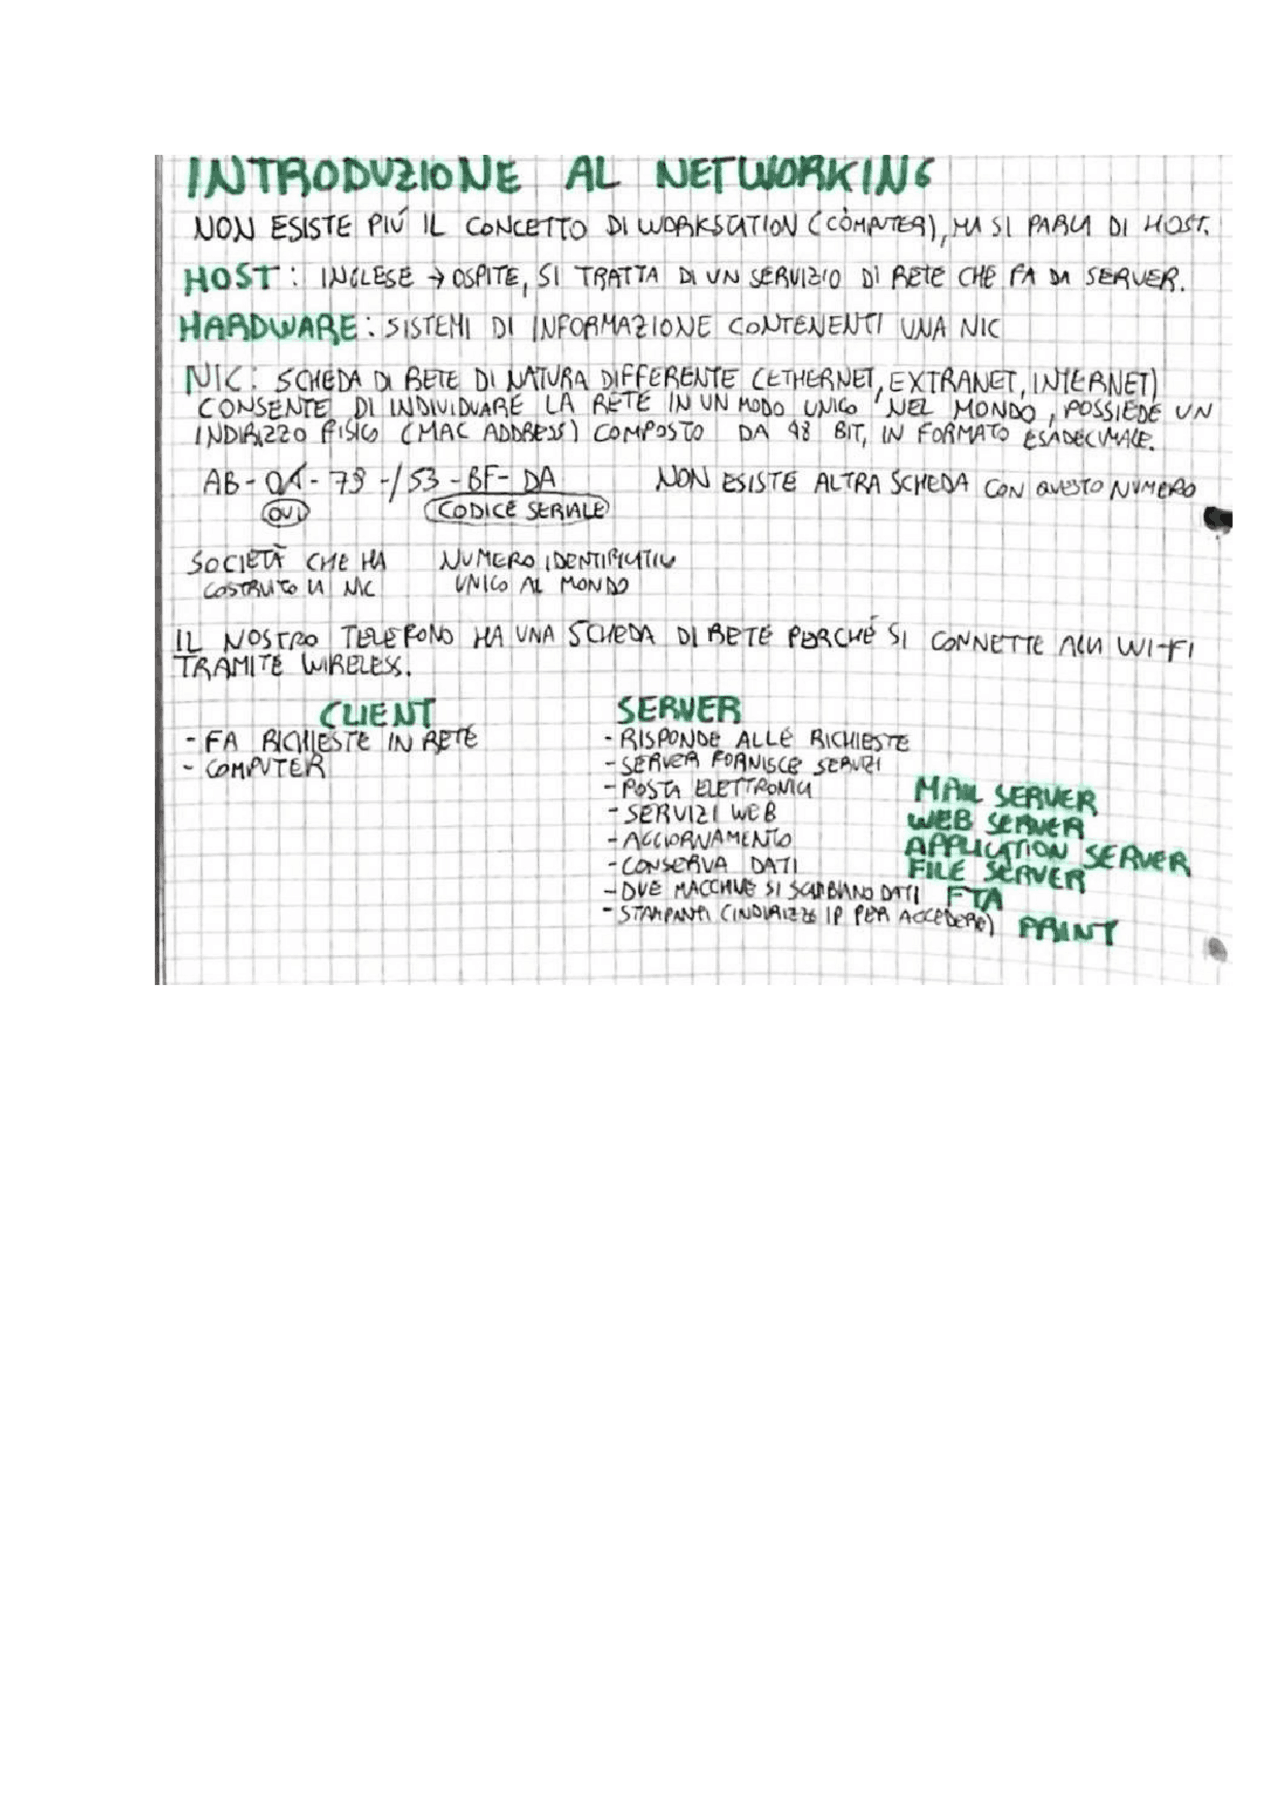 INTRODUZIONE AL NETWORKING
NON ESISTE PIÚ IL CONCETTO DI WORKSTATION (COMPUTER), MA SI PARLA DI HOST.
HOST: INGLESE → OSPITE, SI TRATTA DI UN SERVIZIO DI RETE CHE FA DA SERVER.
HARDWARE: SISTEMI DI INFORMAZIONE CONTENENTI UNA NIC
NIC: SCHEDA DI RETE DI NATURA DIFFERENTE (ETHERNET, EXTRANET, INTERNET)
CONSENTE DI INDIVIDUARE LA RETE IN UN MODO UNICO NEL MONDO, POSSIEDE UN
INDIRIZZO FISICO (MAC ADDRESS) COMPOSTO DA 48 BIT, IN FORMATO ESADECIMALE.
AB- - 79 -/ 53 -BF- DA NON ESISTE ALTRA SCHEDA CON QUESTO NUMERO
OUI CODICE SERIALE
SOCIETÀ CHE HA NUMERO IDENTIFICATIVO
COSTRUITO LA NIC UNICO AL MONDO
IL NOSTRO TELEFONO HA UNA SCHEDA DI RETE PERCHÉ SI CONNETTE ALLA WI-FI
TRAMITE WIRELESS.
CLIENT SERVER
- FA RICHIESTE IN RETE - RISPONDE ALLE RICHIESTE
- COMPUTER - SERVER FORNISCE SERVIZI
- POSTA ELETTRONICA MAIL SERVER
- SERVIZI WEB WEB SERVER
- AGGIORNAMENTO APPLICATION SERVER
- CONSERVA DATI FILE SERVER
- DUE MACCHINE SI SCAMBIANO DATI FTA
- STAMPANTI (INDIRIZZO IP PER ACCEDERE) PRINT